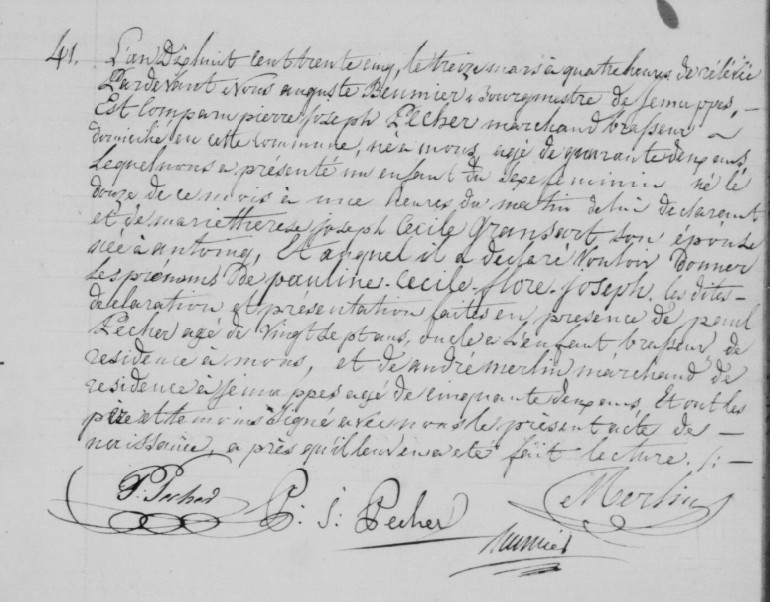 41. L'an Dixhuit cent trente cinq, le treize mars à quatre heures de rélévée
Pardevant Nous auguste Beumier Bourgmestre de Jemappes, —
Est Comparu pierre Joseph Pécher marchand brasseur —
domicilié en cette Commune, né à mons, agé de quarante deux ans,
Lequel nous a présenté un enfant du sexe feminin né le
douze de ce mois à une heures du matin de lui declarent
et de marie therese Joseph Cecile Gransart son épouse
née à antoing, Et auquel il a declaré vouloir Donner
Les prenoms De pauline-Cecile-flore-Joseph. les dites-
declaration et présentation faites en presence de paul
Pécher agé de vingt sept ans, oncle a L'enfant brasseur, de
residence à mons, et de andré merlin marchand de
residence à Jemappes agé de cinquante deux ans, Et ont les
père et temoins signé avec nous le présent acte de —
naissance, après qu'il leur en a eté fait lecture. /: —
P: Pecher P: J: Pecher Merlin
Beumier